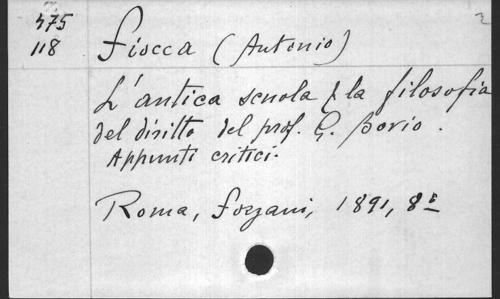 475
118
Fiocca (Antonio)
L'antica scuola & la filosofia
del diritto del prof. G. Bovio.
Appunti critici.
Roma, Forzani, 1891, 8º
2